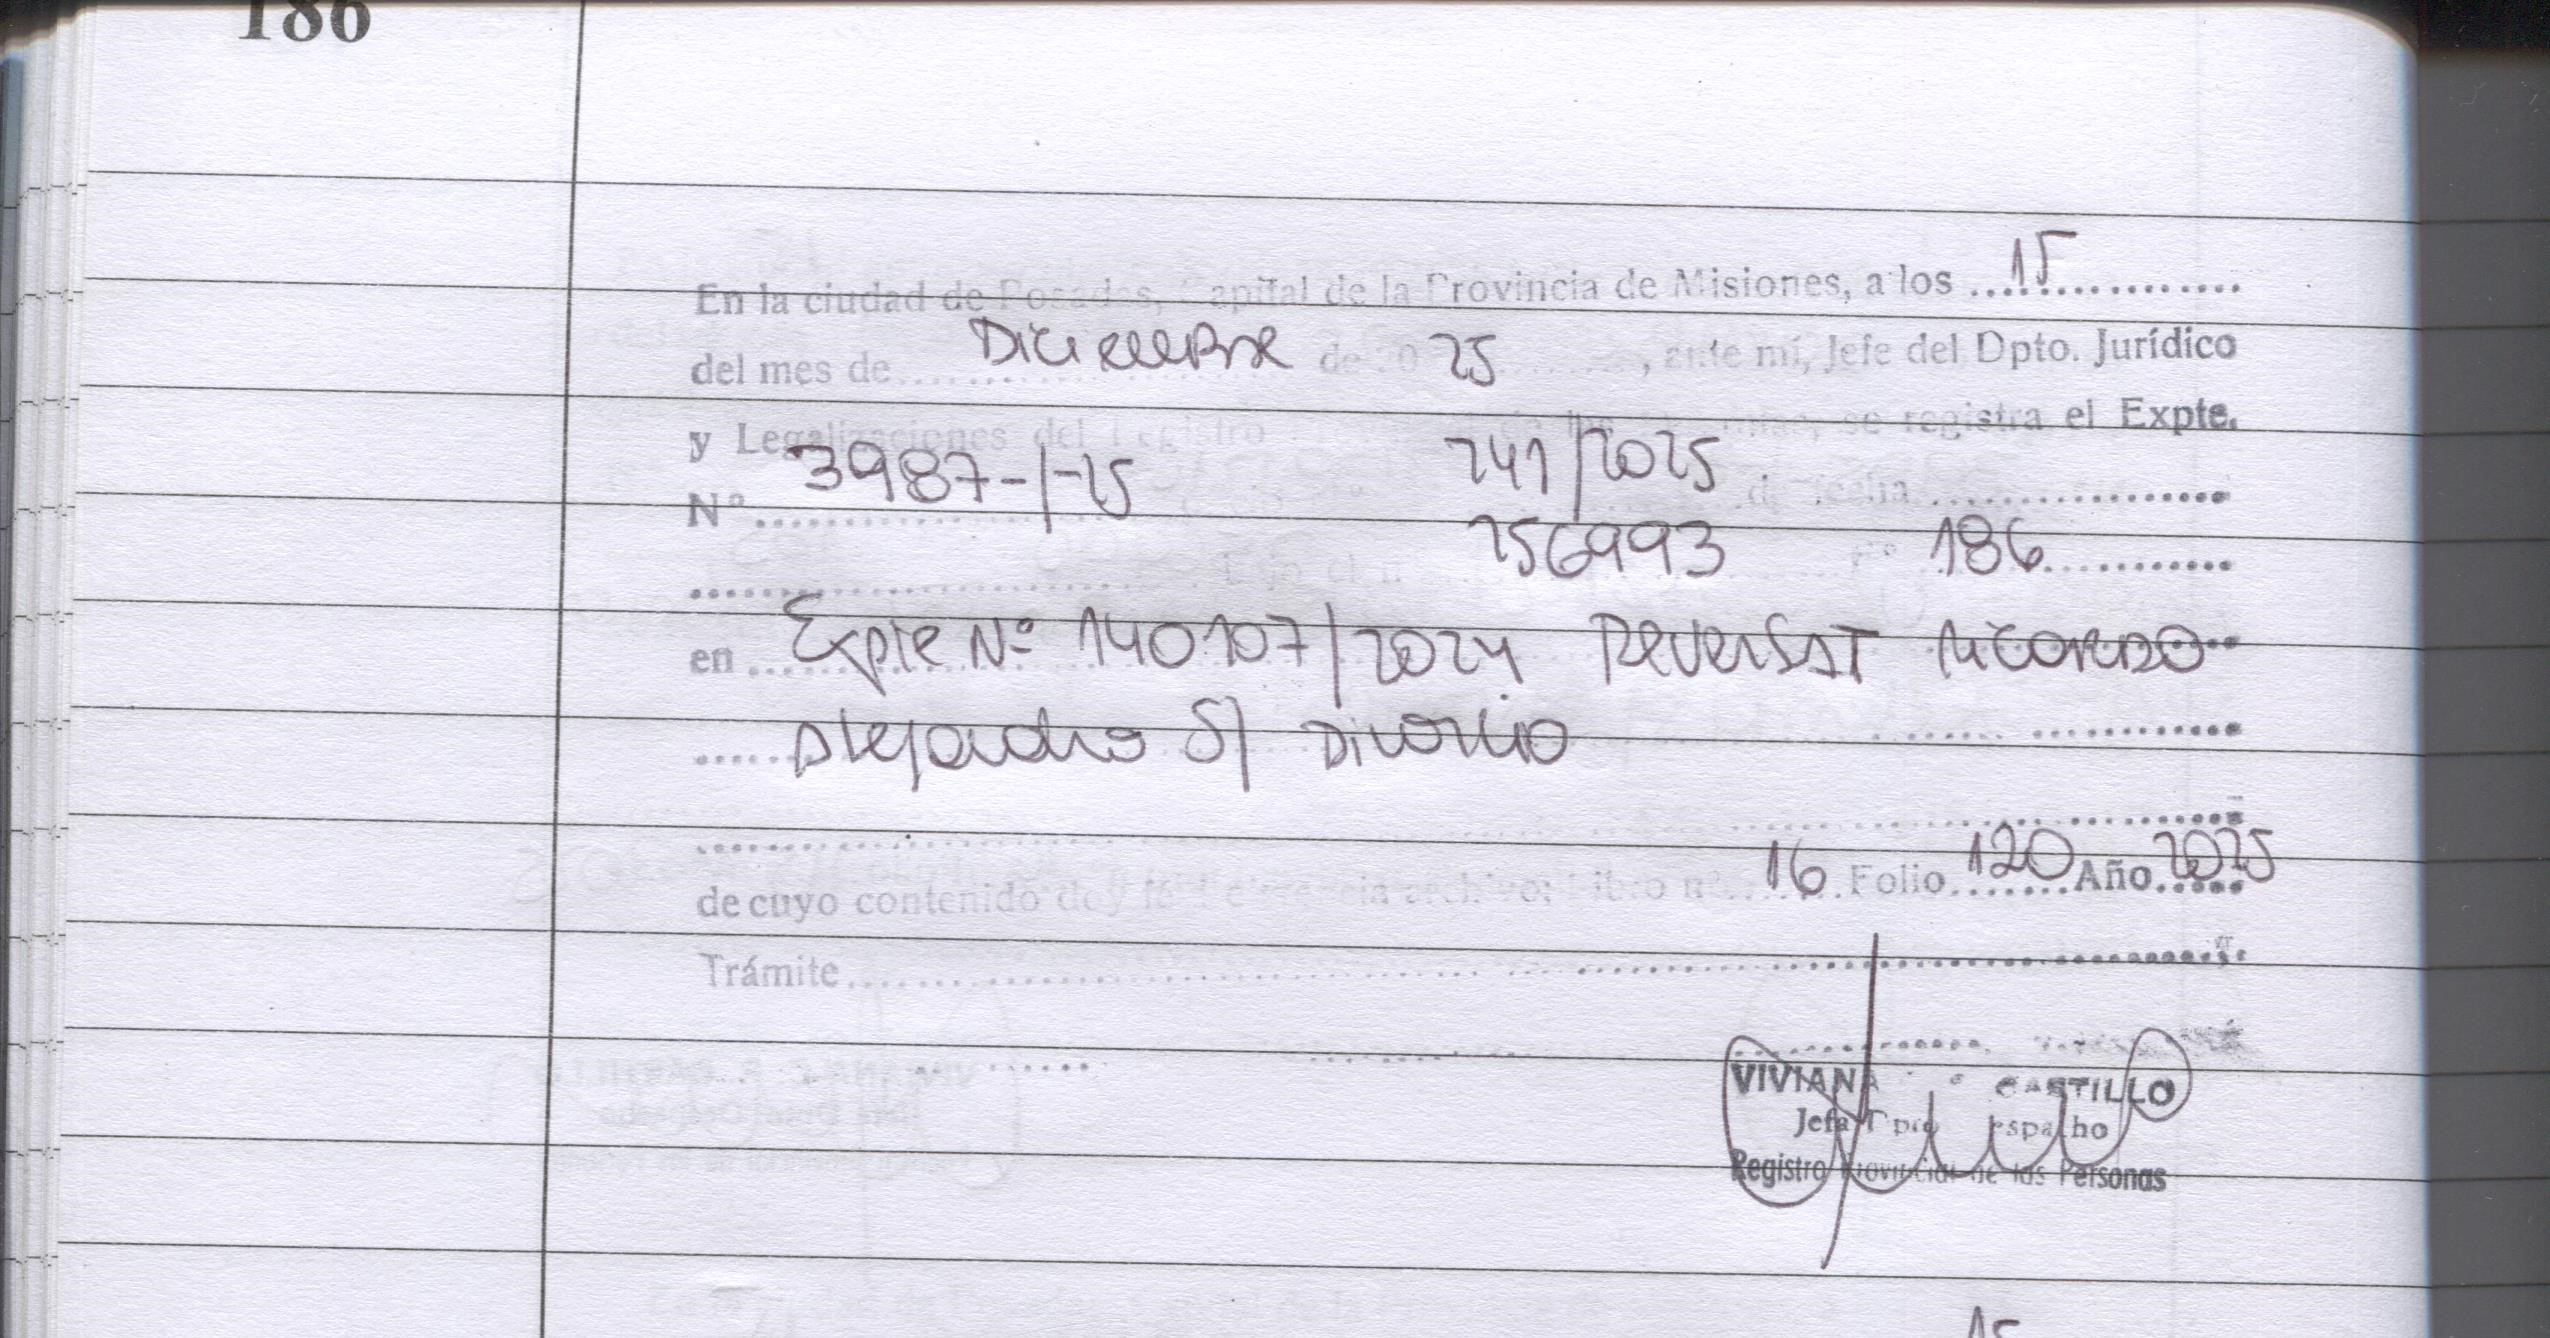 186
En la ciudad de Posadas, Capital de la Provincia de Misiones, a los 15
del mes de Diciembre de 20 25, ante mí, Jefe del Dpto. Jurídico
y Legalizaciones del Registro se registra el Expte.
Nº 3987-1-25 241/2025 de fecha
256993 186
en Expte Nº 140107/2024 Reversat Ricardo
Alejandro S/ Divorcio
de cuyo contenido doy fe archivo: Libro nº 16 Folio 120 Año 2025
Trámite
VIVIANA CASTILLO
Jefa Dpto Despacho
Registro Provincial de las Personas
15